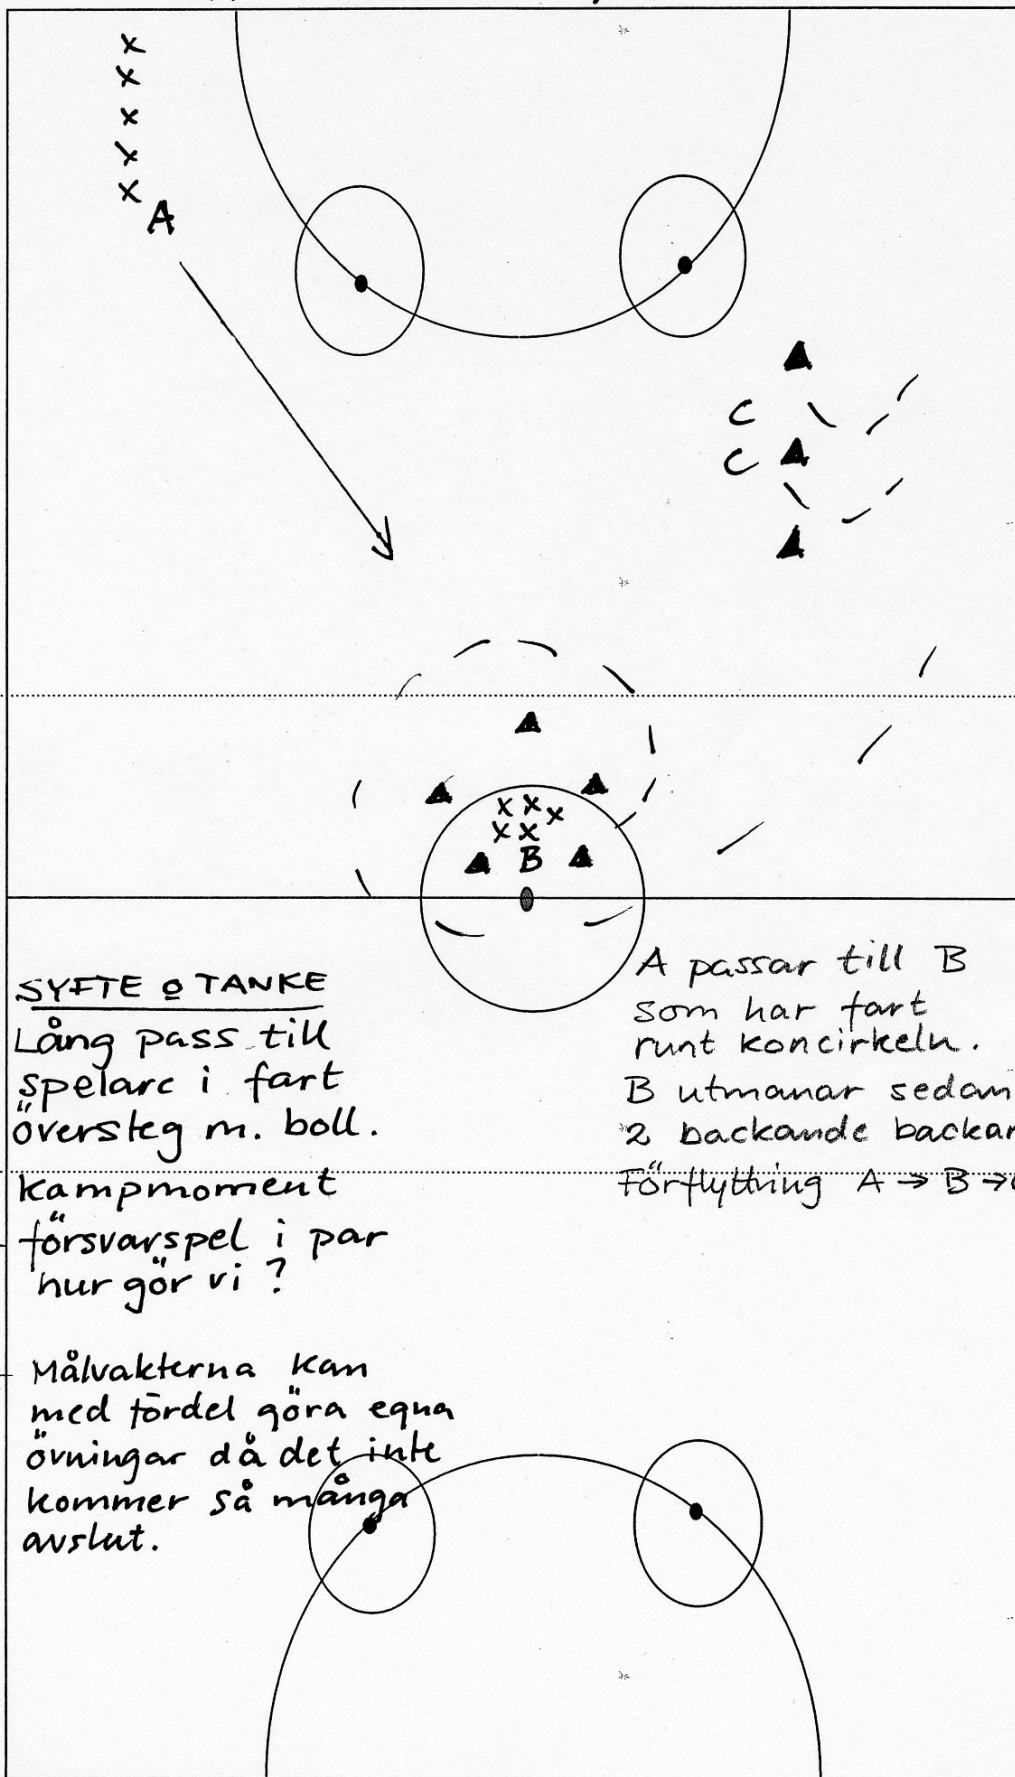 x
x
x
x
x
A
C
C
x x x
x x
B
SYFTE o TANKE
Lång pass till
spelare i fart
översteg m. boll.
kampmoment
försvarspel i par
hur gör vi ?
Målvakterna kan
med fördel göra egna
övningar då det inte
kommer så många
avslut.
A passar till B
som har fart
runt koncirkeln.
B utmanar sedan
2 backande backar
Förflyttning A → B →